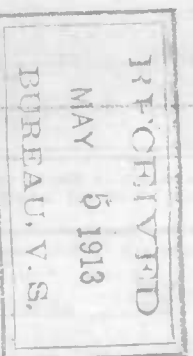 RECEIVED
MAY 5 1913
BUREAU, V. S.